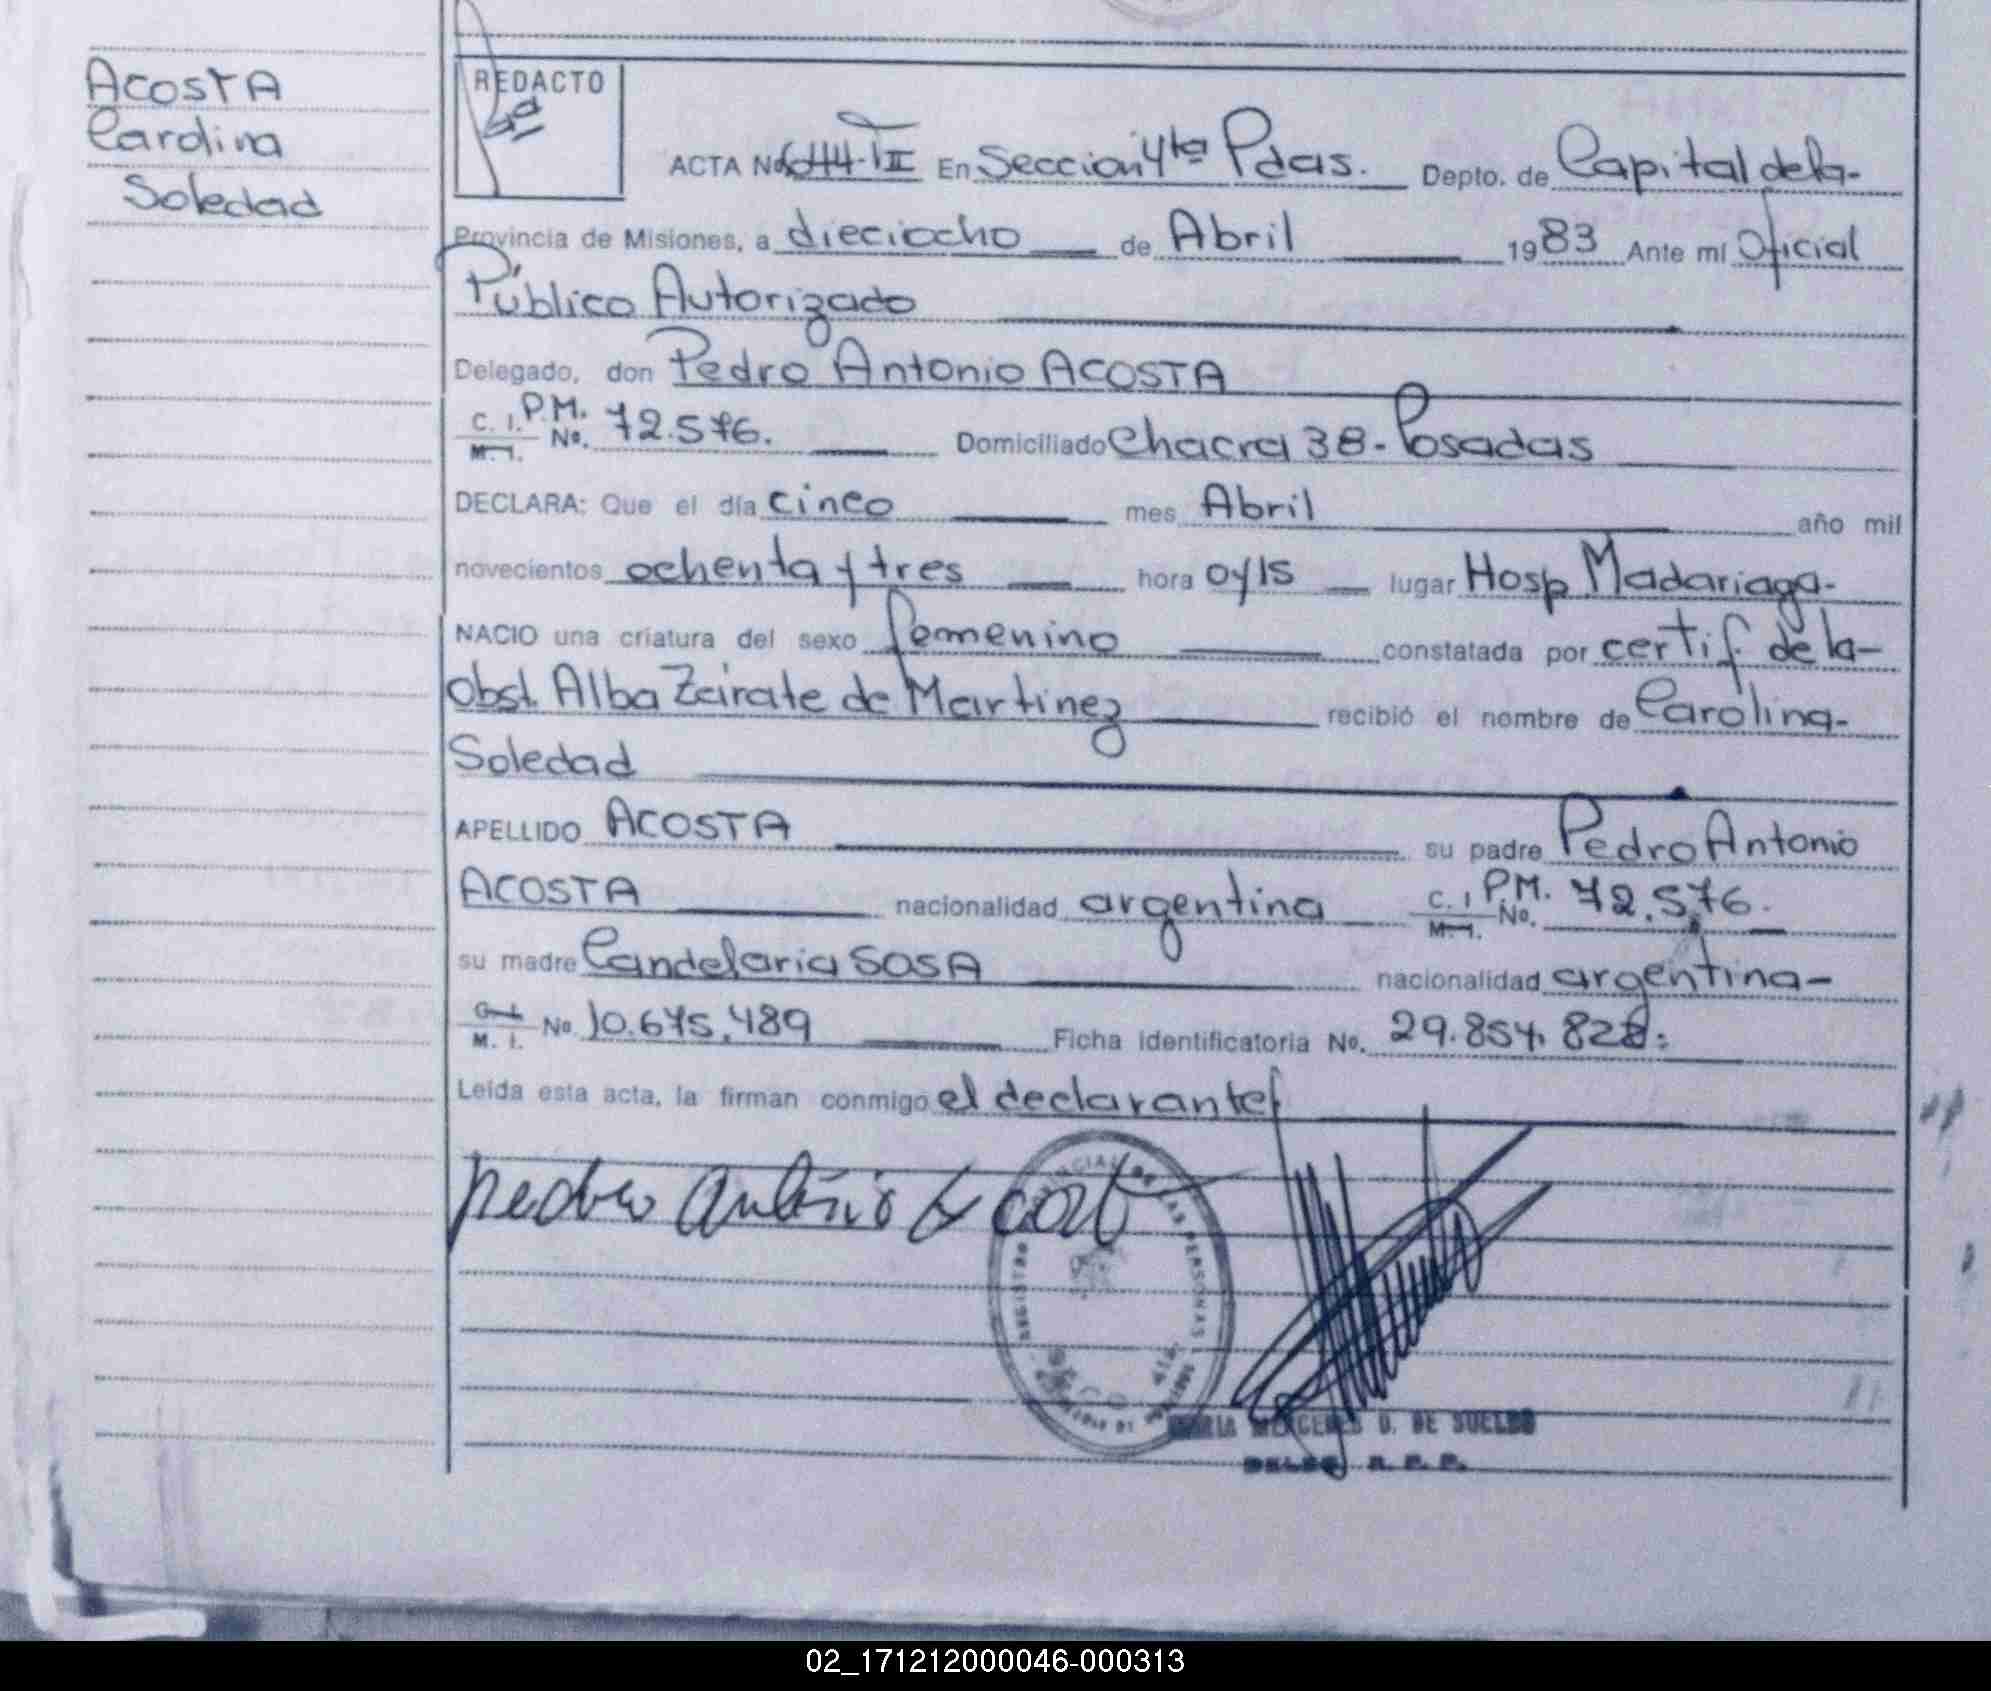 ACOSTA
Carolina
Soledad
REDACTO
ACTA No 644-TII En Seccion 4ta Pdas. Depto. de Capital de la-
Provincia de Misiones, a dieciocho de Abril 1983 Ante mí Oficial
Público Autorizado
Delegado, don Pedro Antonio ACOSTA
C. I. P.M. No. 72.576. Domiciliado Chacra 38 - Posadas
M. I.
DECLARA: Que el día cinco mes Abril año mil
novecientos ochenta y tres hora 0y15 lugar Hosp Madariaga-
NACIO una criatura del sexo femenino constatada por certif de la-
obst. Alba Zárate de Martinez recibió el nombre de Carolina-
Soledad
APELLIDO ACOSTA su padre Pedro Antonio
ACOSTA nacionalidad argentina C. I. P.M. No. 72.576.
M. I.
su madre Candelaria SOSA nacionalidad argentina-
C. I. M. I. No. 10.675.489 Ficha identificatoria No. 29.854.828.
Leída esta acta, la firman conmigo el declarante
Pedro Antonio Acosta
REGISTRO PROVINCIAL DE LAS PERSONAS
MARIA MERCEDES D. DE SUELDO
DELEG. R. P. P.
02_171212000046-000313